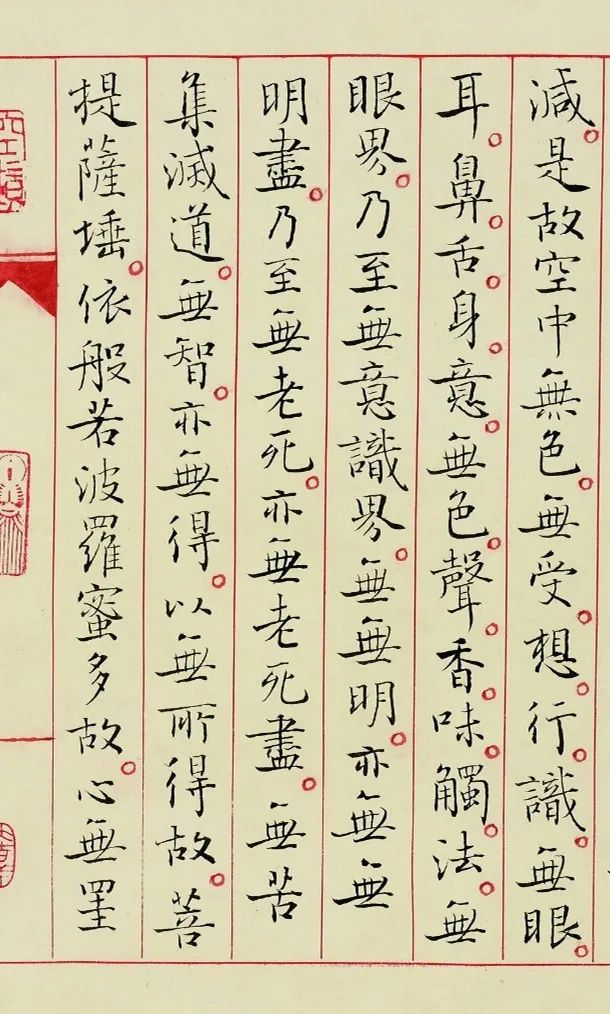 減。是故空中無色。無受。想。行。識。無眼。
耳。鼻。舌。身。意。無色。聲。香。味。觸。法。無
眼界。乃至無意識界。無無明。亦無無
明盡。乃至無老死。亦無老死盡。無苦
集滅道。無智。亦無得。以無所得故。菩
提薩埵。依般若波羅蜜多故。心無罣